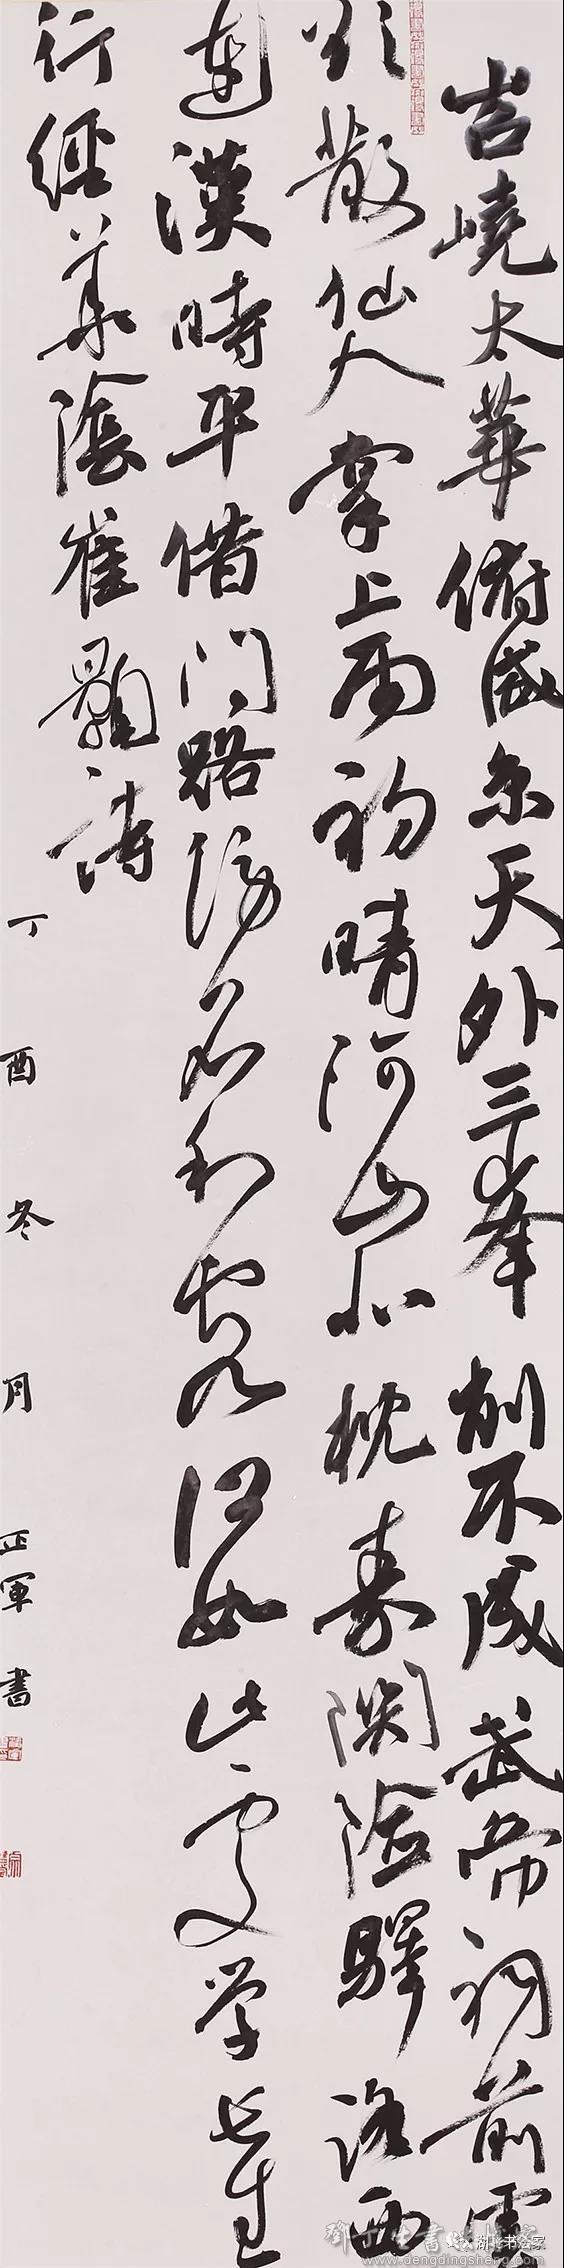 岧嶢太華俯咸京天外三峯削不成武帝祠前雲
欲散仙人掌上雨初晴河山北枕秦關險驛路西
連漢時平借问路傍名利客何如此處学長生
行經華陰崔顥詩
丁酉冬月正軍書
www.dengdingsheng.com